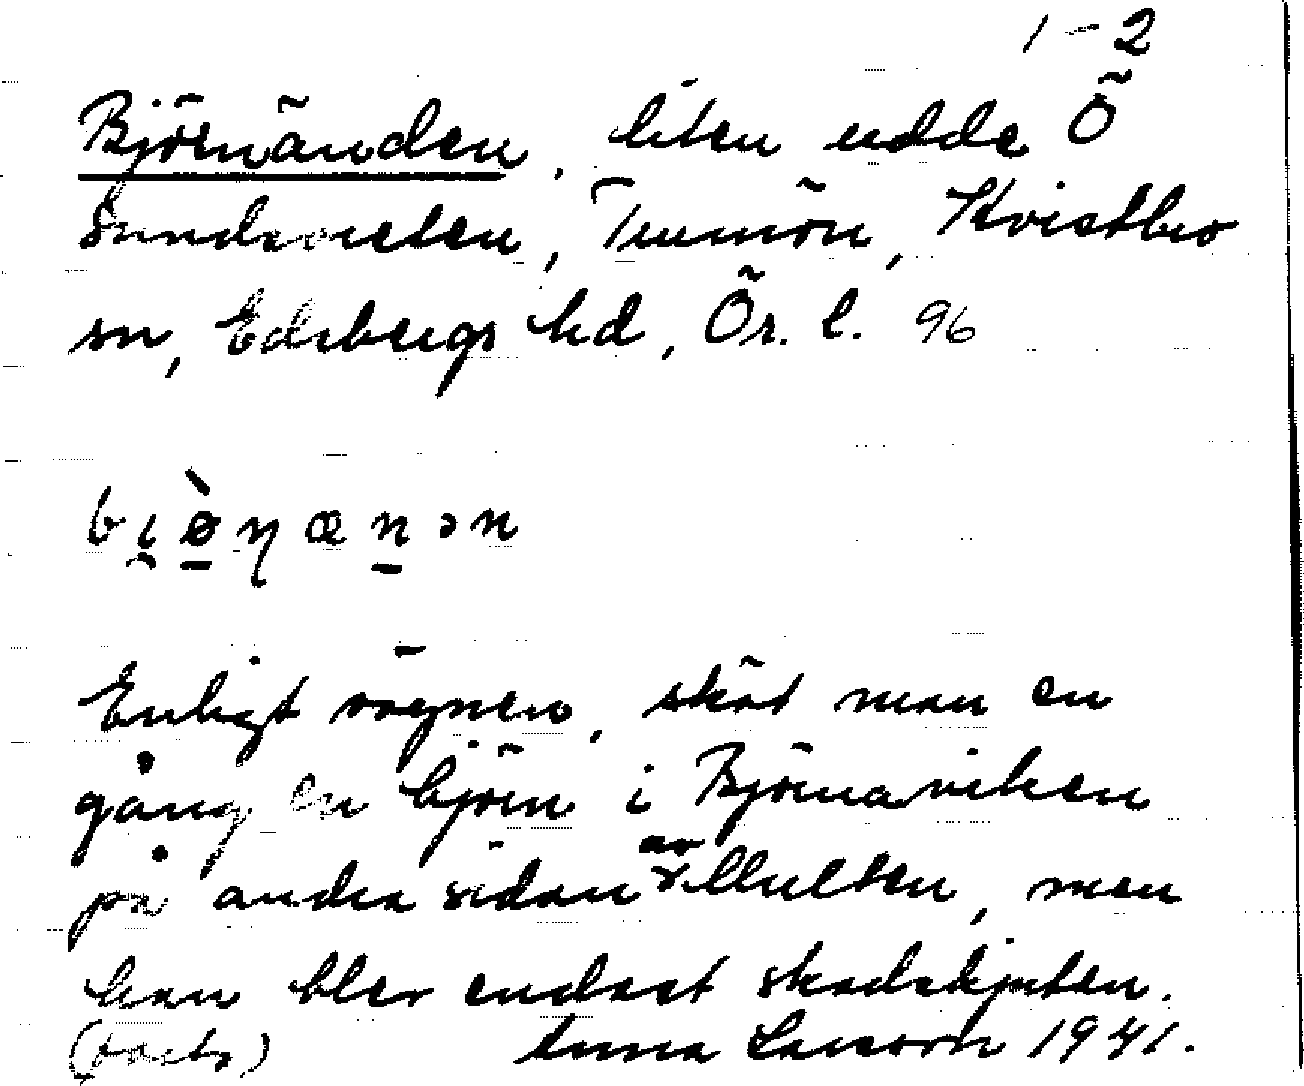 1-2
Björnänden, liten udde Ö
Sundsveten, Trumön, Kvistbro
sn, Edsbergs hd, Ör. l. 96
bi̯ø̀ɳænən
Enligt sägnen, sköt man en
gång en björn i Björnaviken
på andra sidan av Multen, men
han blev endast skadskjuten.
(forts)
Anna Larsson 1941.